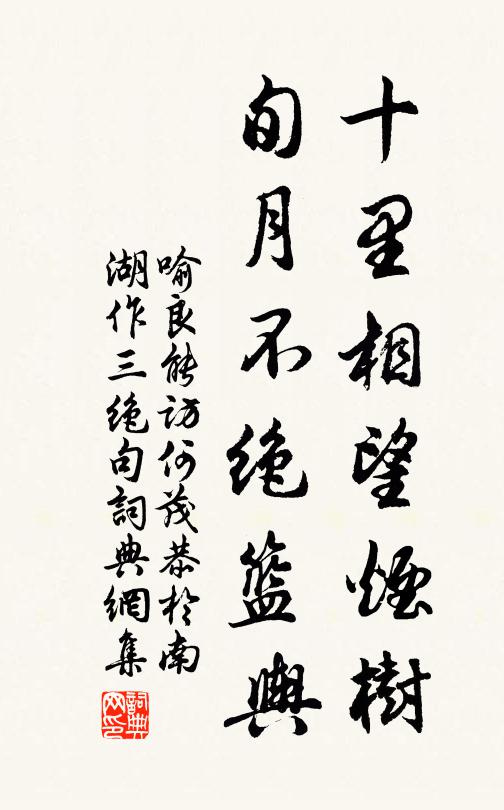 十里相望煙樹
旬月不絕籃輿
喻良能訪何茂恭於南
湖作三絕句詞典網集
詞典
网印